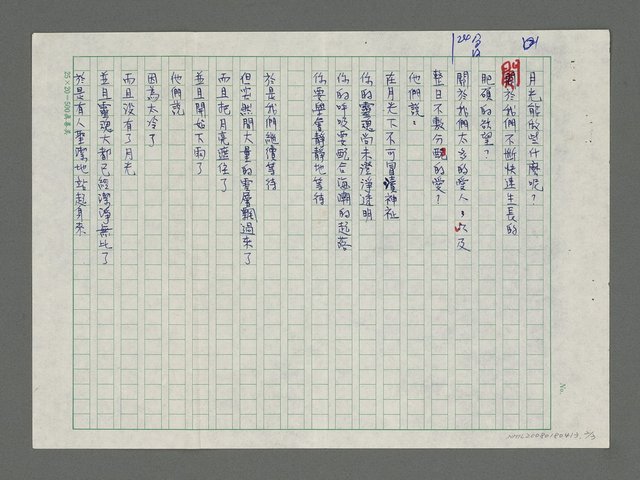 月光能做些什麼呢？
關於我們不斷快速生長的
肥碩的欲望？
關於我們太多的愛人，以及
整日不敷分配的愛？
他們說，
在月光下不可冒瀆神祉
你的靈魂尚未澄淨透明
你的呼吸要配合海潮的起落
你要學會靜靜地等待
於是我們繼續等待
但突然間大量的雲層飄過來了
而且把月亮遮住了
並且開始下雨了
他們說
因為太冷了
而且沒有了月光
並且靈魂大都已經潔淨無比了
於是有人聖潔地站起身來
25×20=500
No.
NML20080180413